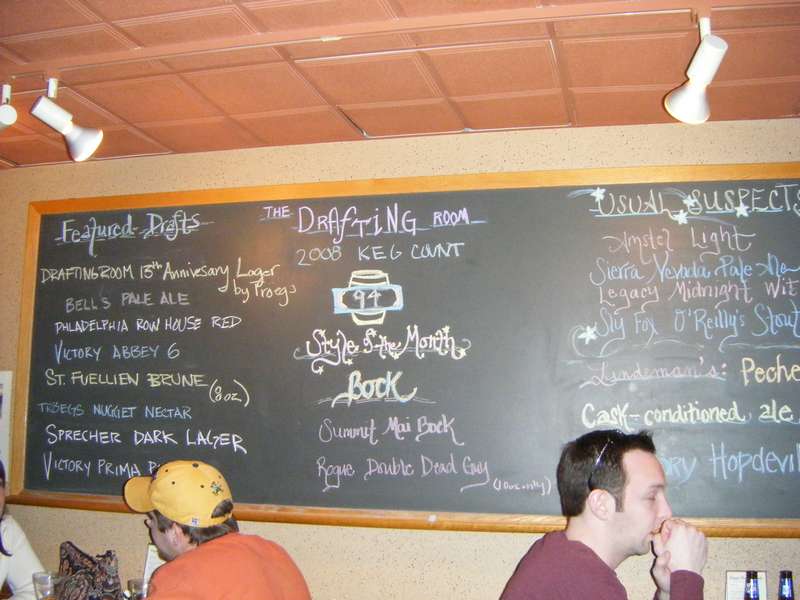 Featured Drafts
DRAFTINGROOM 13th Annivesary Lager
by Troegs
BELL'S PALE ALE
PHILADELPHIA ROW HOUSE RED
VICTORY ABBEY 6
ST. FUELLIEN BRUNE (8oz)
TROEGS NUGGET NECTAR
SPRECHER DARK LAGER
VICTORY PRIMA
THE DRAFTING ROOM
2008 KEG COUNT
94
Style of the Month
BOCK
Summit Mai Bock
Rogue Double Dead Guy (10oz only)
USUAL SUSPECTS
Amstel Light
Sierra Nevada Pale Ale
Legacy Midnight Wit
Sly Fox O'Reilly's Stout
Lindeman's: Peche
Cask-conditioned ale
ory Hopdevil